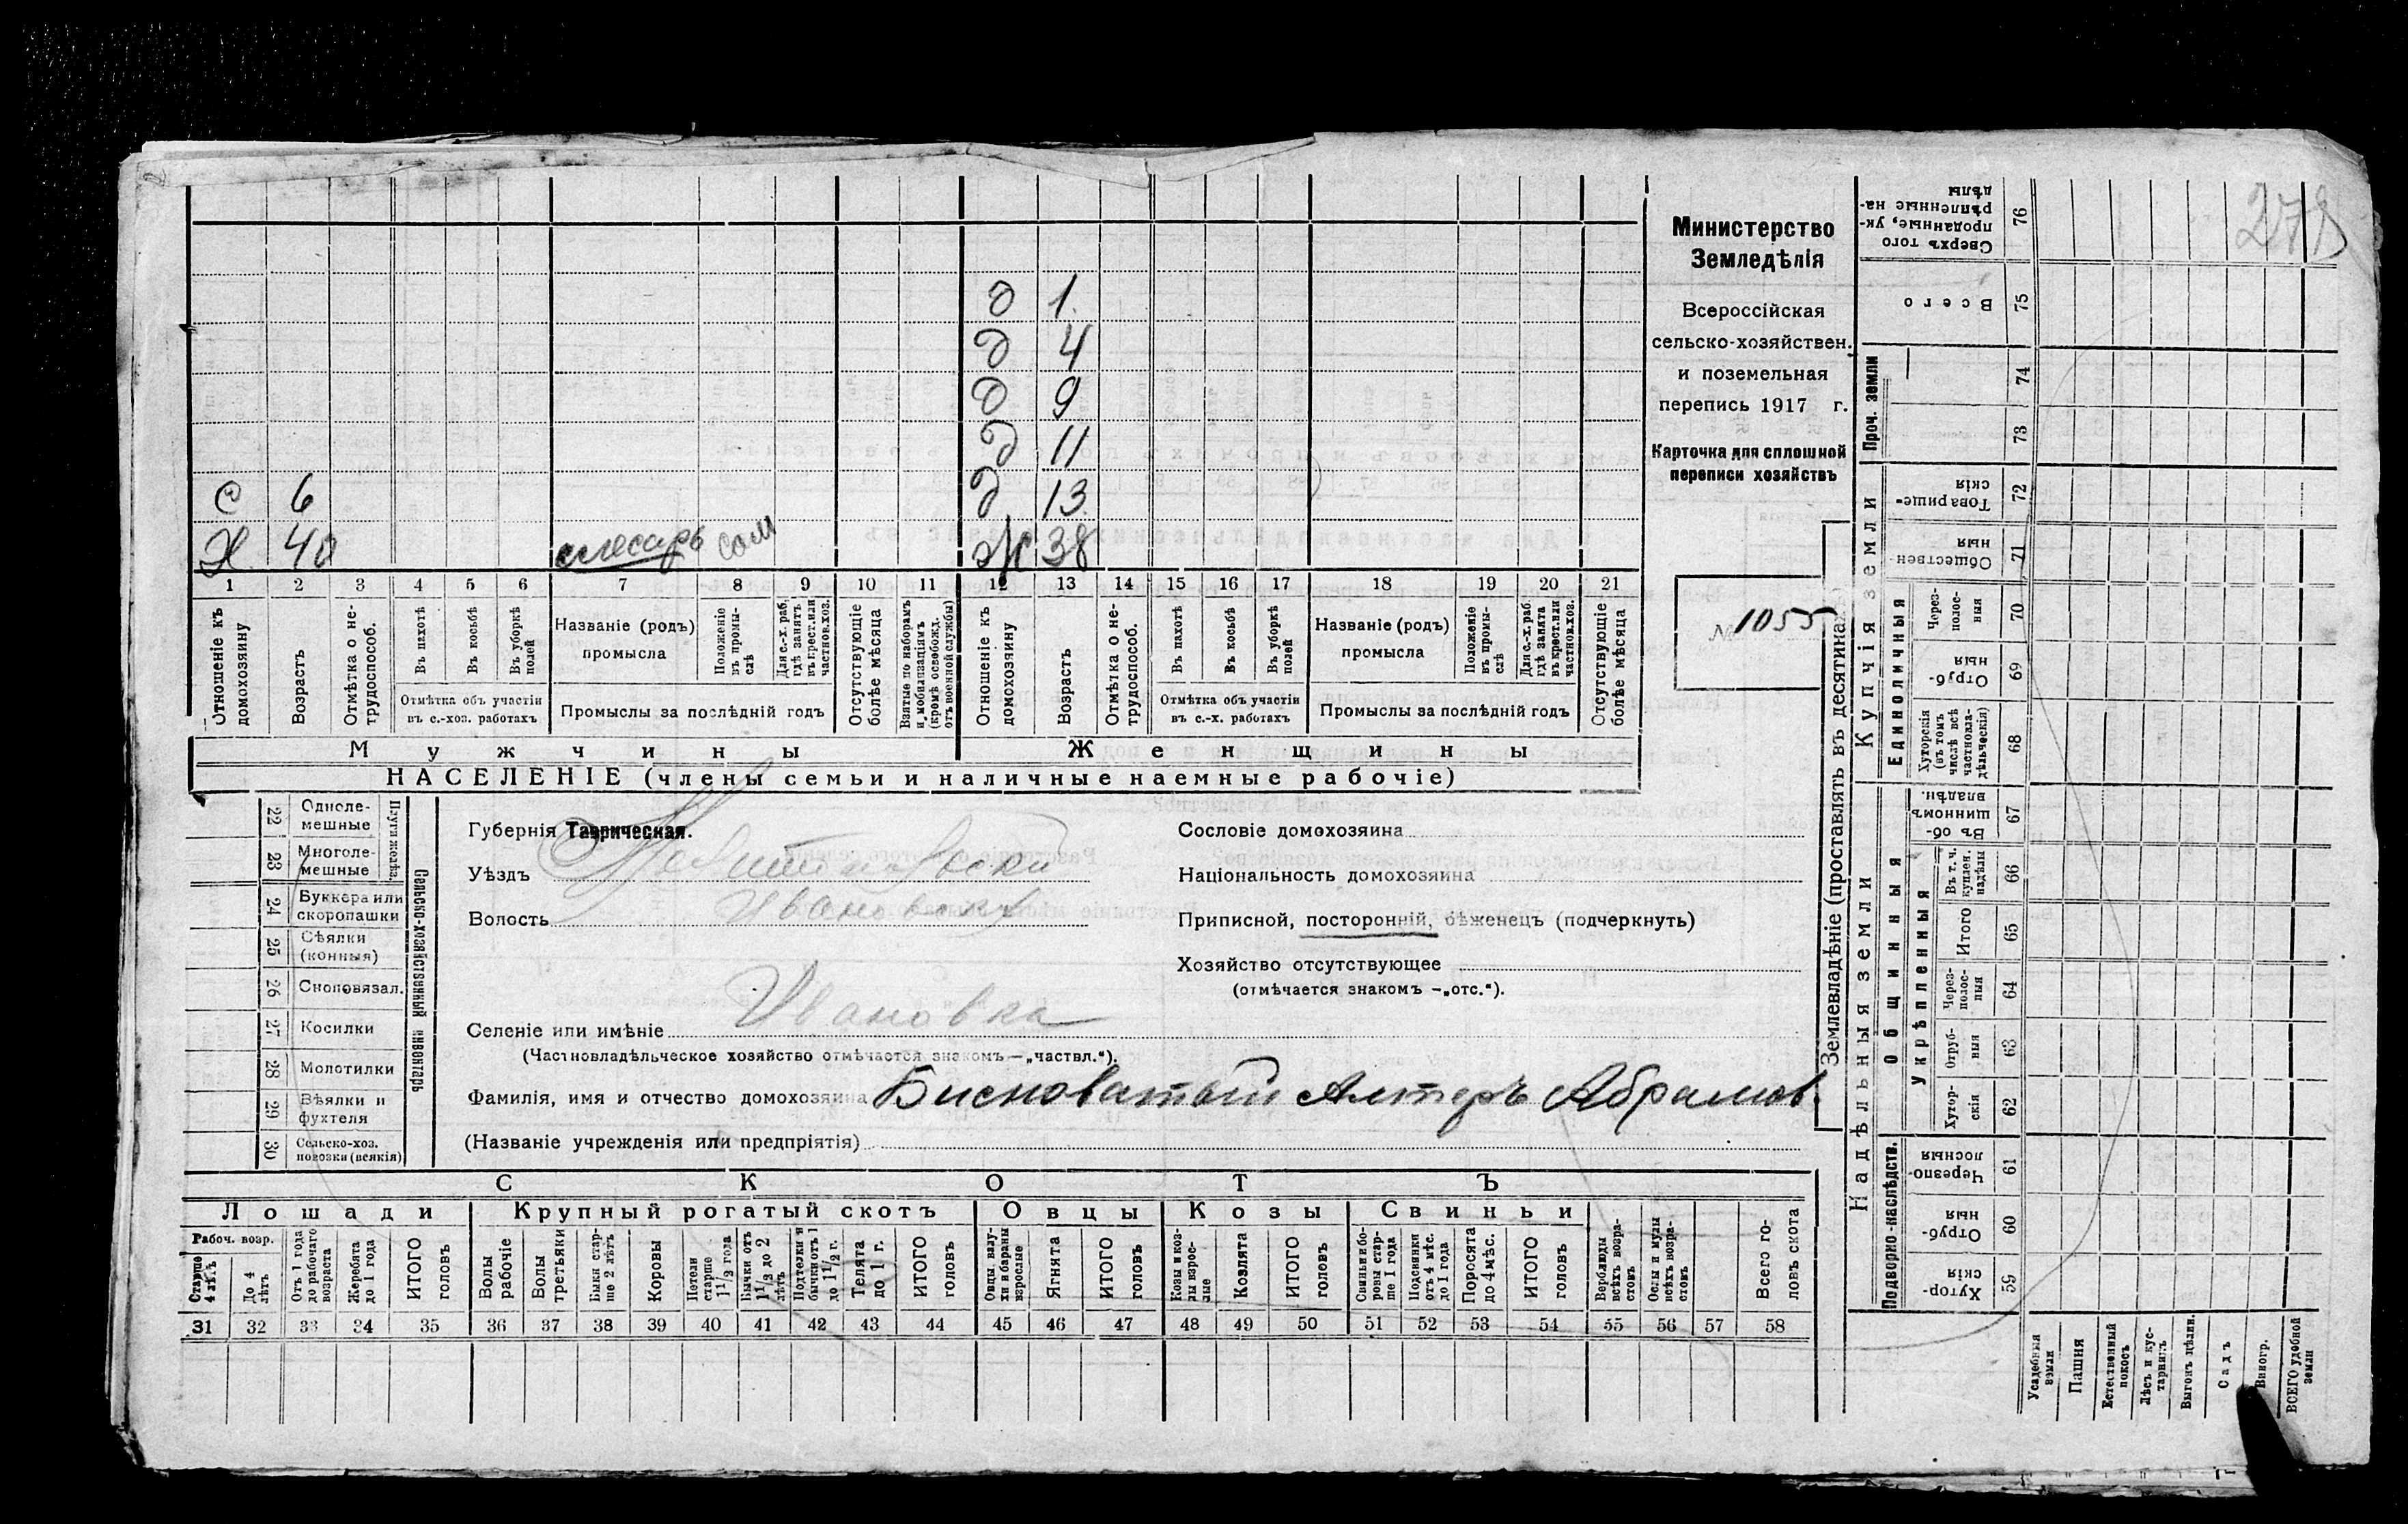 278
Министерство
Земледѣлія
Всероссійская
сельско-хозяйствен.
и поземельная
перепись 1917 г.
Карточка для сплошной
переписи хозяйствъ
№ 1055
д 1.
д 4
д 9
д 11
с 6 д 13.
Х. 40 слесарь сам ж 38
1 2 3 4 5 6 7 8 9 10 11 12 13 14 15 16 17 18 19 20 21
Отношеніе къ домохозяину
Возрастъ
Отмѣтка о не-трудоспособ.
Въ пахотѣ
Въ косьбѣ
Въ уборкѣ полей
Отмѣтка объ участіи
въ с.-хоз. работахъ
Названіе (родъ)
промысла
Положеніе въ промы-слѣ
Для с.-х. раб. гдѣ занятъ въ крест. или частнов. хоз.
Промыслы за послѣдній годъ
Отсутствующіе болѣе мѣсяца
Взятые по наборамъ и мобилизаціямъ (кромѣ освобожд. отъ военной службы)
Отношеніе къ домохозяину
Возрастъ
Отмѣтка о не-трудоспособ.
Въ пахотѣ
Въ косьбѣ
Въ уборкѣ полей
Отмѣтка объ участіи
въ с.-х. работахъ
Названіе (родъ)
промысла
Положеніе въ промы-слѣ
Для с.-х. раб. гдѣ занята въ крест. или частнов. хоз.
Промыслы за послѣдній годъ
Отсутствующіе болѣе мѣсяца
Мужчины Женщины
НАСЕЛЕНІЕ (члены семьи и наличные наемные рабочіе)
22 Одноле-мешные
23 Многоле-мешные
Плуги желѣз.
24 Буккера или скоропашки
25 Сѣялки (конныя)
26 Сноповязал.
27 Косилки
28 Молотилки
29 Вѣялки и фухтеля
30 Сельско-хоз. повозки (всякія)
Сельско-хозяйственный инвентарь
Губернія Таврическая.
Уѣздъ
Волость Ивановская
Селеніе или имѣніе Ивановка
(Частновладѣльческое хозяйство отмѣчается знакомъ—„частвл.“).
Фамилія, имя и отчество домохозяина Бисноватый Алтеръ Абрамов.
(Названіе учрежденія или предпріятія)
Сословіе домохозяина
Національность домохозяина
Приписной, посторонній, бѣженецъ (подчеркнуть)
Хозяйство отсутствующее
(отмѣчается знакомъ —„отс.“).
СКОТЪ
Лошади Крупный рогатый скотъ Овцы Козы Свиньи
Рабоч. возр.
Старше 4 лѣтъ
До 4 лѣтъ
Отъ 1 года до рабочаго возраста
Жеребята до 1 года
ИТОГО головъ
Волы рабочіе
Волы третьяки
Быки стар-ше 2 лѣтъ
Коровы
Нетели старше 1 1/2 года
Бычки отъ 1 1/2 до 2 лѣтъ
Подтелки и бычки отъ 1 до 1 1/2 г.
Телята до 1 г.
ИТОГО головъ
Овцы, валу-хи и бараны взрослые
Ягнята
ИТОГО головъ
Козы и коз-лы взрос-лые
Козлята
ИТОГО головъ
Свиньи и бо-ровы стар-ше 1 года
Подсвинки отъ 4 мѣс. до 1 года
Поросята до 4 мѣс.
ИТОГО головъ
Верблюды всѣхъ возра-стовъ
Ослы и мулы всѣхъ возра-стовъ
Всего го-ловъ скота
31 32 33 34 35 36 37 38 39 40 41 42 43 44 45 46 47 48 49 50 51 52 53 54 55 56 57 58
Землевладѣніе (проставлять въ десятинахъ)
Купчія земли
Проч. земли
Единоличныя
Надѣльныя земли
Общинныя
Укрѣпленныя
Подворно-наслѣдств.
Сверхъ того проданные, ук-рѣпленные на-дѣлы 76
Всего 75
74
73
Товарище-скія 72
Обществен-ныя 71
Через-полос-ныя 70
Отруб-ныя 69
Хуторскія (въ томъ числѣ всѣ частновла-дѣльческія) 68
Въ об-щинномъ владѣн. 67
Въ т. ч. куплен. надѣлы 66
Итого 65
Через-полос-ныя 64
Отруб-ныя 63
Хутор-скія 62
Черезпо-лосныя 61
Отруб-ныя 60
Хутор-скія 59
Усадебныя земли
Пашня
Естественный покосъ
Лѣсъ и кус-тарникъ
Выгонъ цѣлин.
Садъ
Виногр.
ВСЕГО удобной земли